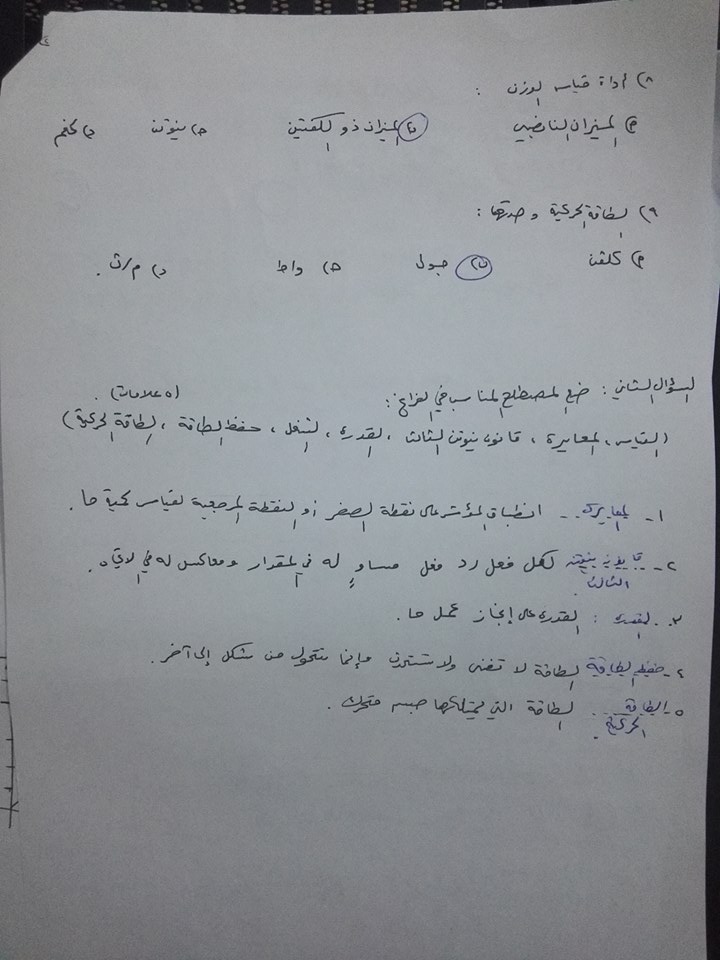 ٨) أداة قياس الوزن :
أ) الميزان النابضي ب) الميزان ذو الكفتين ج) نيوتن د) كغم
٩) الطاقة الحركية وحدتها :
أ) كلفن ب) جول ج) واط د) م/ث .
السؤال الثاني : ضع المصطلح المناسب في الفراغ : (٥ علامات) .
(القياس ، المعايرة ، قانون نيوتن الثالث ، القدرة ، الشغل ، حفظ الطاقة ، الطاقة الحركية)
١- المعايرة .. انطباق المؤشر على نقطة الصفر أو النقطة المرجعية لقياس كمية ما .
٢- قانون نيوتن لكل فعل رد فعل مساوٍ له في المقدار ومعاكس له في الاتجاه .
الثالث
٣. القدرة : القدرة على إنجاز عمل ما .
٤- حفظ الطاقة الطاقة لا تفنى ولا تستحدث وإنما تتحول من شكل إلى آخر .
٥- الطاقة .. الطاقة التي يمتلكها جسم متحرك .
الحركية .